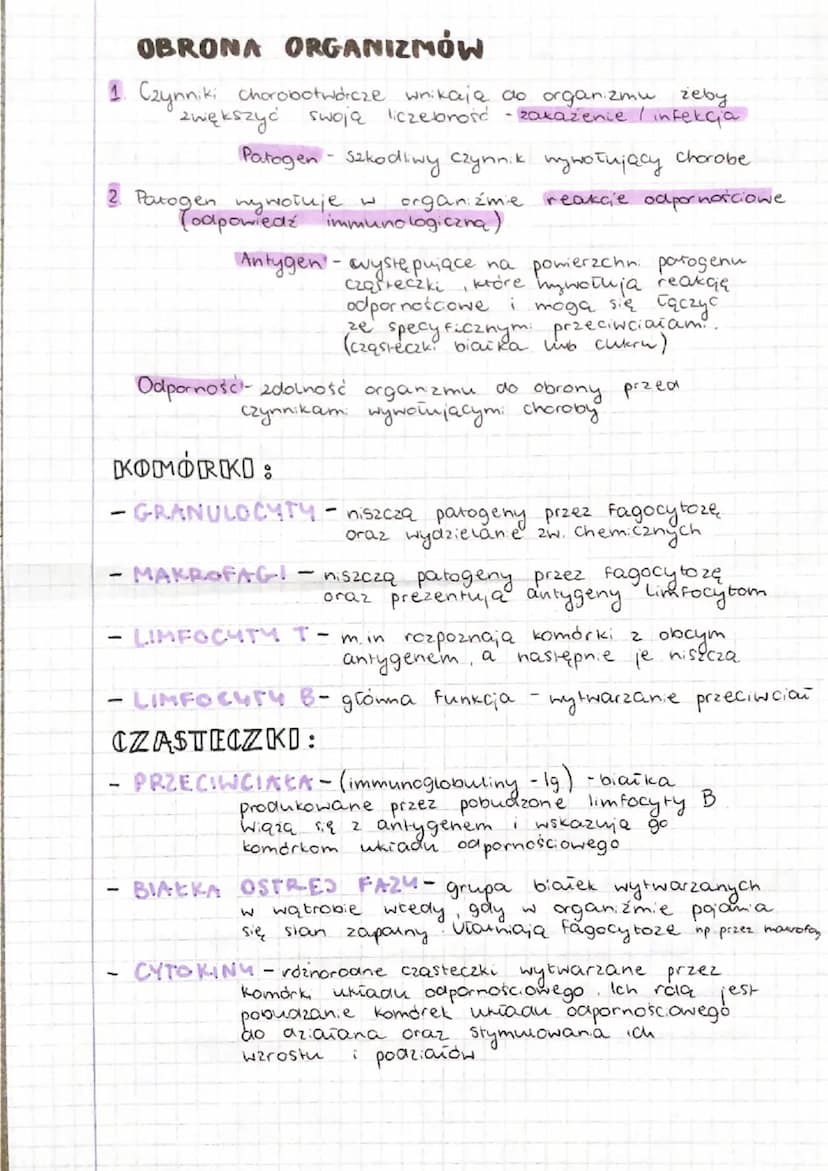 OBRONA ORGANIZMÓW
1. Czynniki chorobotwórcze wnikają do organizmu żeby
zwiększyć swoją liczebność - zakażenie / infekcja
Patogen - szkodliwy czynnik wywołujący chorobe
2. Patogen wywołuje w organiźmie reakcje odpornościowe
(odpowiedź immunologiczną)
Antygen - występujące na powierzchni patogenu
cząsteczki, które wywołują reakcję
odpornościowe i mogą się łączyć
ze specyficznymi przeciwciałami.
(cząsteczki białka lub cukru)
Odporność - zdolność organizmu do obrony przed
czynnikami wywołującymi choroby
KOMÓRKI:
- GRANULOCYTY - niszczą patogeny przez fagocytozę
oraz wydzielanie zw. chemicznych
- MAKROFAGI - niszczą patogeny przez fagocytozę
oraz prezentują antygeny limfocytom
- LIMFOCYTY T - m.in rozpoznają komórki z obcym
antygenem, a następnie je niszczą
- LIMFOCYTY B - główna funkcja - wytwarzanie przeciwciał
CZĄSTECZKI:
- PRZECIWCIAŁA - (immunoglobuliny - Ig) - białka
produkowane przez pobudzone limfocyty B
Wiążą się z antygenem i wskazują go
komórkom układu odpornościowego
- BIAŁKA OSTREJ FAZY - grupa białek wytwarzanych
w wątrobie wtedy, gdy w organiźmie pojawia
się stan zapalny. Ułatwiają fagocytozę np. przez makrofagi
- CYTOKINY - różnorodne cząsteczki wytwarzane przez
komórki układu odpornościowego. Ich rolą jest
pobudzanie komórek układu odpornościowego
do działana oraz stymulowana ich
wzrostu i podziałów